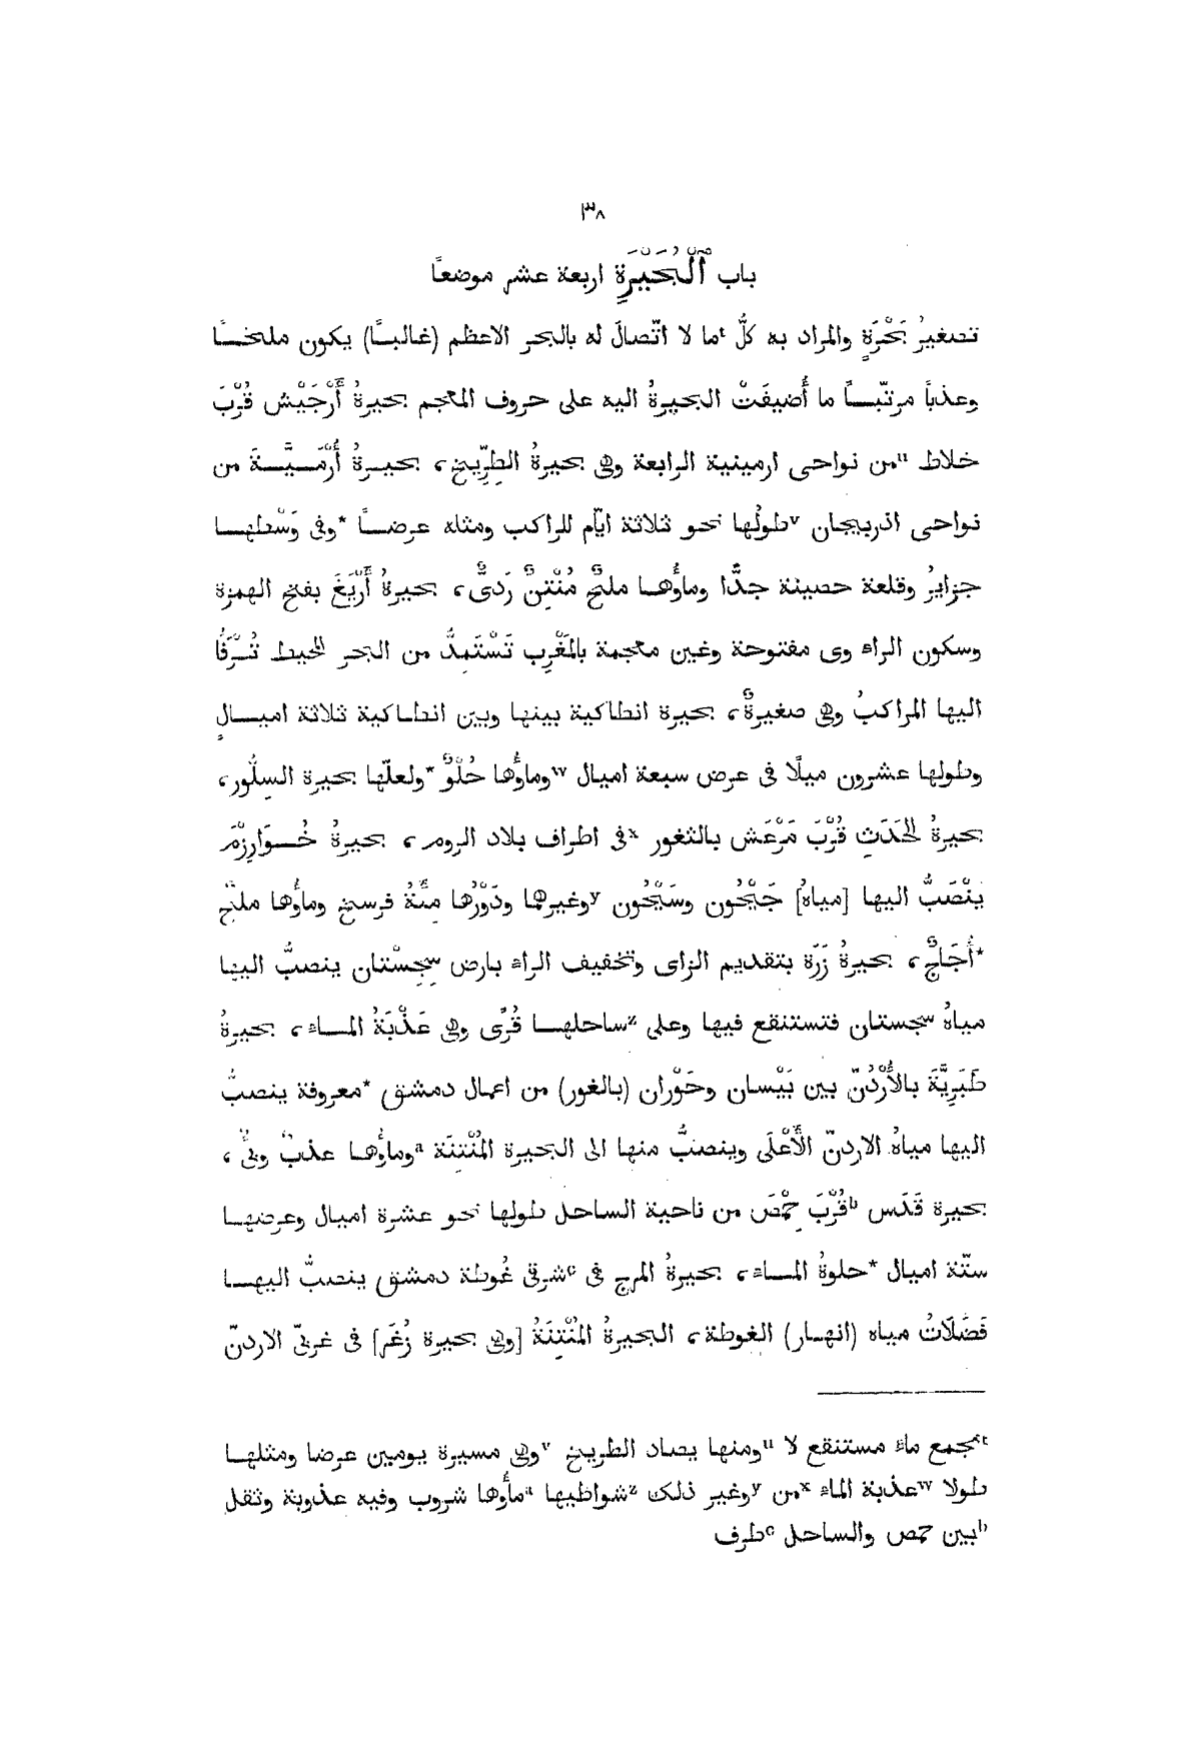 ٣٨
باب ٱلْبُحَيْرَةِ اربعة عشر موضعًا
تصغيرُ بَحْرَةٍ والمراد به كلُّ ᵗما لا اتّصالَ له بالبحر الاعظم (غالبـًا) يكون ملحًـا
وعذبًا مرتّبـًا ما أُضيفَتْ البحيرةُ اليه على حروف المعجم بحيرةُ أَرْجَيْش قُرْبَ
خلاط ᵘمن نواحى ارمينية الرابعة وهى بحيرةُ الطِرِّيخ، بحيـرةُ أُرْمَـيَّـةَ من
نواحى اذربيجان ᵛطولُها نحو ثلاثة ايّام للراكب ومثله عرضـًا *وفى وَسْطهـا
جزايرُ وقلعة حصينة جدًّا وماؤُهـا ملحٌ مُنْتِنٌ رَدِىٌّ، بحيرةُ أَرْيَغَ بفتح الهمزة
وسكون الراء وى مفتوحة وغين معجمة بالمَغْرِب تَسْتَمِدُّ من البحر المحيط تُـرْفَأُ
اليها المراكبُ وهى صغيرةٌ، بحيرة انطاكية بينها وبين انطـاكية ثلاثة اميـالٍ
وطولها عشرون ميلًا فى عرض سبعة اميال ʷوماؤُها حُلْوٌ *ولعلّها بحيرة السِلَّور،
بحيرةُ الحَدَثِ قُرْبَ مَرْعَش بالثغور ˣفى اطراف بلاد الروم، بحيرةُ خُـوَارِزْمَ
يَنْصَبُّ اليها [مياهُ] جَيْحُون وسَيْحُون ʸوغيرهما ودَوْرُها مِئَةُ فرسخ وماؤُها ملحٌ
*أُجَاجٌ، بحيرةُ زَرَة بتقديم الزاى وتخفيف الراء بارض سِجِسْتان ينصبُّ اليها
مياهُ سجستان فتستنقع فيها وعلى ᶻساحلهـا قُرًى وهى عَذْبَةُ المـاء، بحيرةُ
طَبَرِيَّةَ بالأُرْدُنّ بين بَيْسان وحَوْران (بالغور) من اعمال دمشق *معروفة ينصبُّ
اليها مياهُ الاردنّ الأَعْلَى وينصبُّ منها الى البحيرة المُنْتِنَة ᵃوماؤُهـا عذبٌ وبىٌّ،
بحيرة قَدَس ᵇقُرْبَ حِمْصَ من ناحية الساحل طولها نحو عشرة اميال وعرضهـا
ستّة اميال *حلوةُ المـاء، بحيرةُ المرج فى ᶜشرقى غُوطة دمشق ينصبُّ اليهـا
فَضَلَاتُ مياه (انهـار) الغوطة، البحيرةُ المُنْتِنَةُ [وهى بحيرة زُغَر] فى غربىّ الاردنّ
ᵗمجمع ماء مستنقع لا ᵘومنها يصاد الطريخ ᵛوهى مسيرة يومين عرضا ومثلهـا
طولا ʷعذبة الماء ˣمن ʸوغير ذلك ᶻشواطيها ᵃمأؤها شروب وفيه عذوبة وثقل
ᵇبين حمص والساحل ᶜطرف